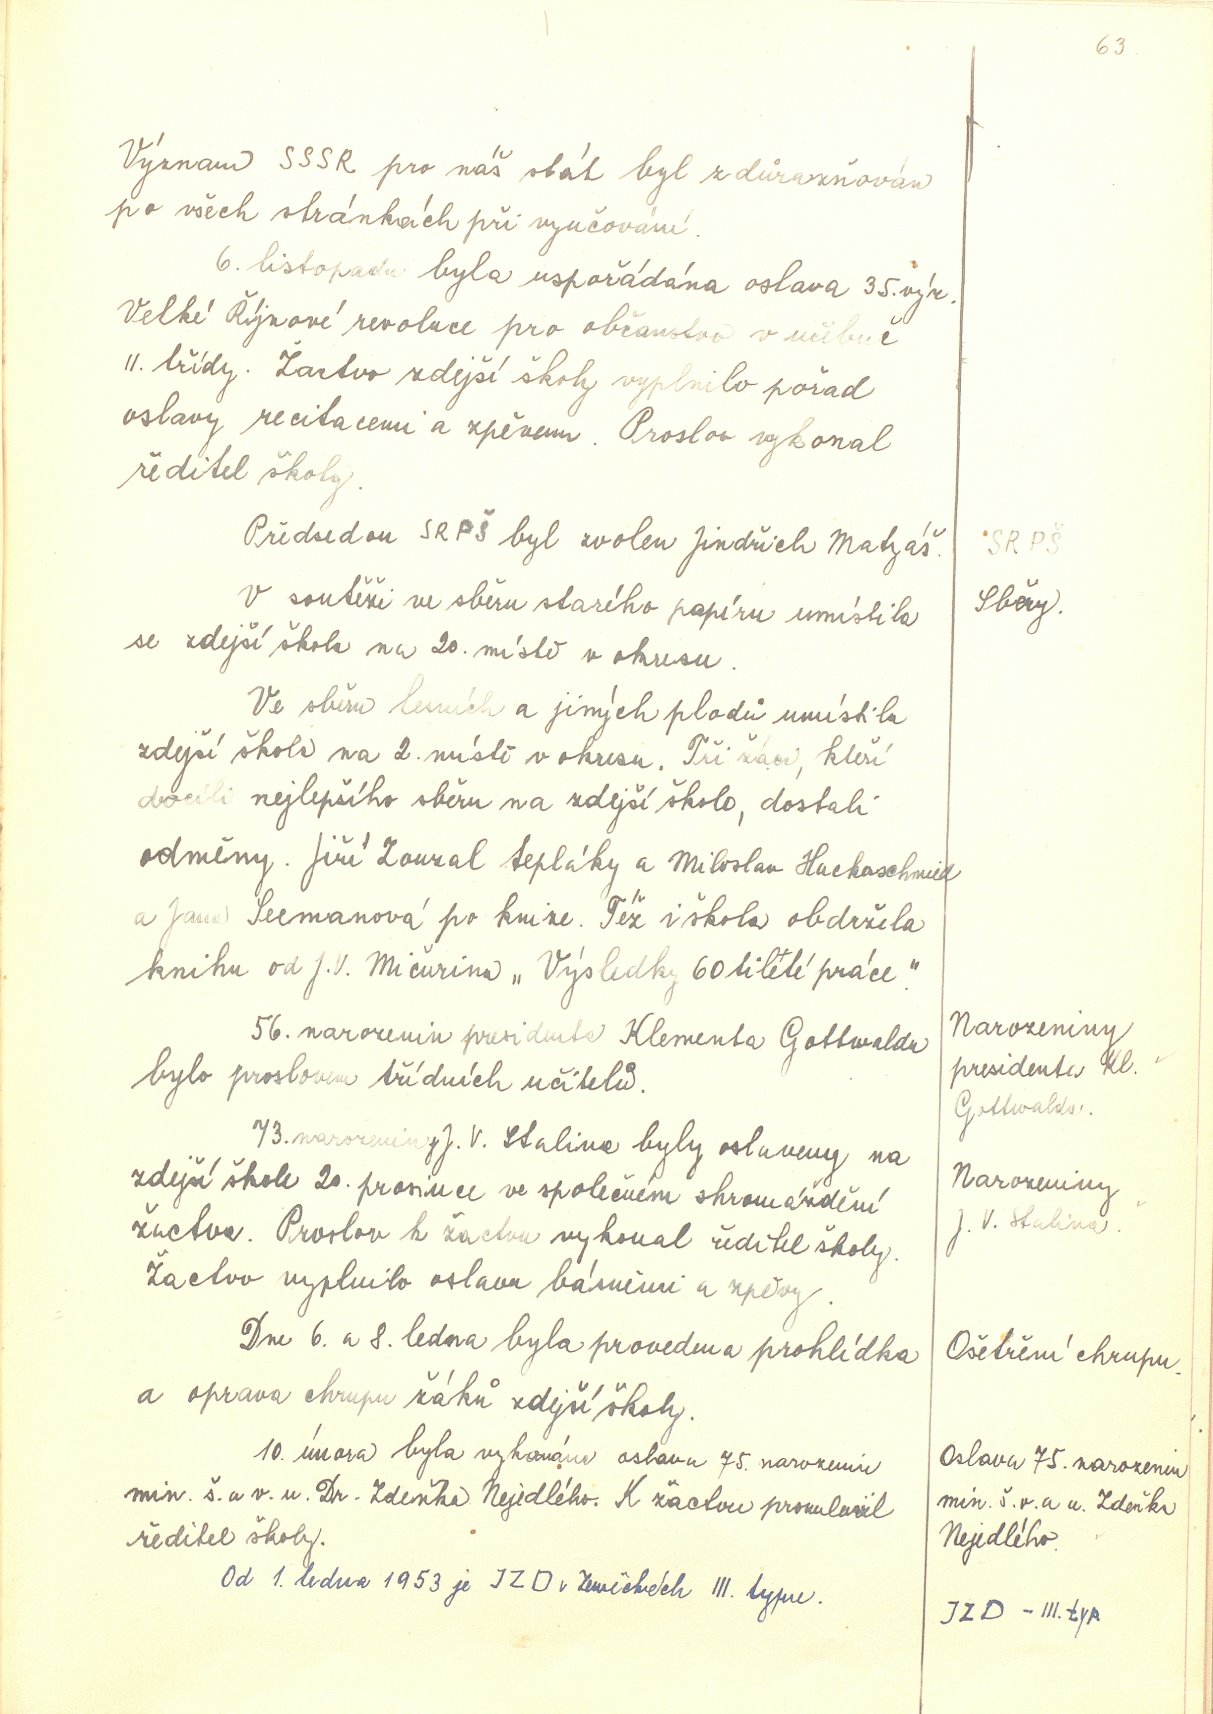 63
Význam SSSR pro náš stát byl zdůrazňován
po všech stránkách při vyučování.
6. listopadu byla uspořádána oslava 35. výr.
Velké Říjnové revoluce pro občanstvo v učebně
II. třídy. Žactvo zdejší školy vyplnilo pořad
oslavy recitacemi a zpěvem. Proslov vykonal
ředitel školy.
Předsedou SRPŠ byl zvolen Jindřich Matyáš.
SRPŠ
V soutěži ve sběru starého papíru umístila
Sběry.
se zdejší škola na 20. místě v okresu.
Ve sběru lesních a jiných plodů umístila
zdejší škola na 2. místě v okresu. Tři žáci, kteří
docílili nejlepšího sběru na zdejší škole, dostali
odměny. Jiří Zouzal tepláky a Miloslav Huckaschmied
a Jana Seemanová po knize. Též i škola obdržela
knihu od J. V. Mičurina „Výsledky 60tileté práce".
56. narozenin presidenta Klementa Gottwalda
bylo proslovem třídních učitelů.
Narozeniny
presidenta Kl.
Gottwalda.
73. narozeniny J. V. Stalina byly oslaveny na
zdejší škole 20. prosince ve společném shromáždění
žactva. Proslov k žactvu vykonal ředitel školy.
Žactvo vyplnilo oslavu básněmi a zpěvy.
Narozeniny
J. V. Stalina.
Dne 6. a 8. ledna byla provedena prohlídka
a oprava chrupu žáků zdejší školy.
Ošetření chrupu.
10. února byla vykonána oslava 75. narozenin
min. š. a v. u. Dr. Zdeňka Nejedlého. K žactvu promluvil
ředitel školy.
Oslava 75. narozenin
min. š. v. a u. Zdeňka
Nejedlého.
Od 1. ledna 1953 je JZD v Zewičkách III. typu.
JZD - III. typ